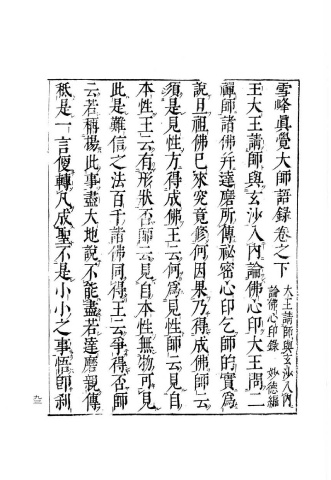 雪峰眞覺大師語錄卷之下
大王請師與玄沙入內
論佛心印錄 妙德編
王大王請師與玄沙入內論佛心印大王問二
禪師諸佛幷達磨所傳祕密心印乞師的實爲
說且祖佛已來究竟修何因果乃得成佛師云
須是見性方得成佛王云何爲見性師云見自
本性王云有形狀否師云見自本性無物可見
此是難信之法百千諸佛同得王云爭得否師
云若稱揚此事盡大地說不能盡若達磨親傳
秪是一言便轉凡成聖不是小小之事悟卽刹
九三